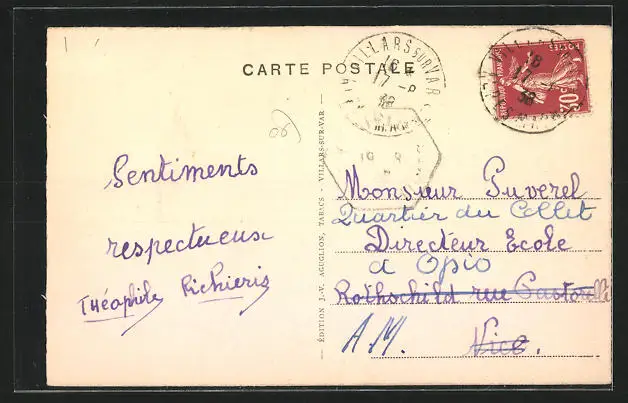 CARTE POSTALE
VILLARS SUR VAR
18
17 - 8
38
VILLARS
18
17
38
30c
POSTES
Sentiments
respectueux
Théophile Richieris
ÉDITION J.-V. AGUGLION, TABACS - VILLARS-SUR-VAR
Monsieur Puverel
Quartier du Collet
Directeur Ecole
a Opio
Rothschild rue Pastorelli
A.M. Nice.
06